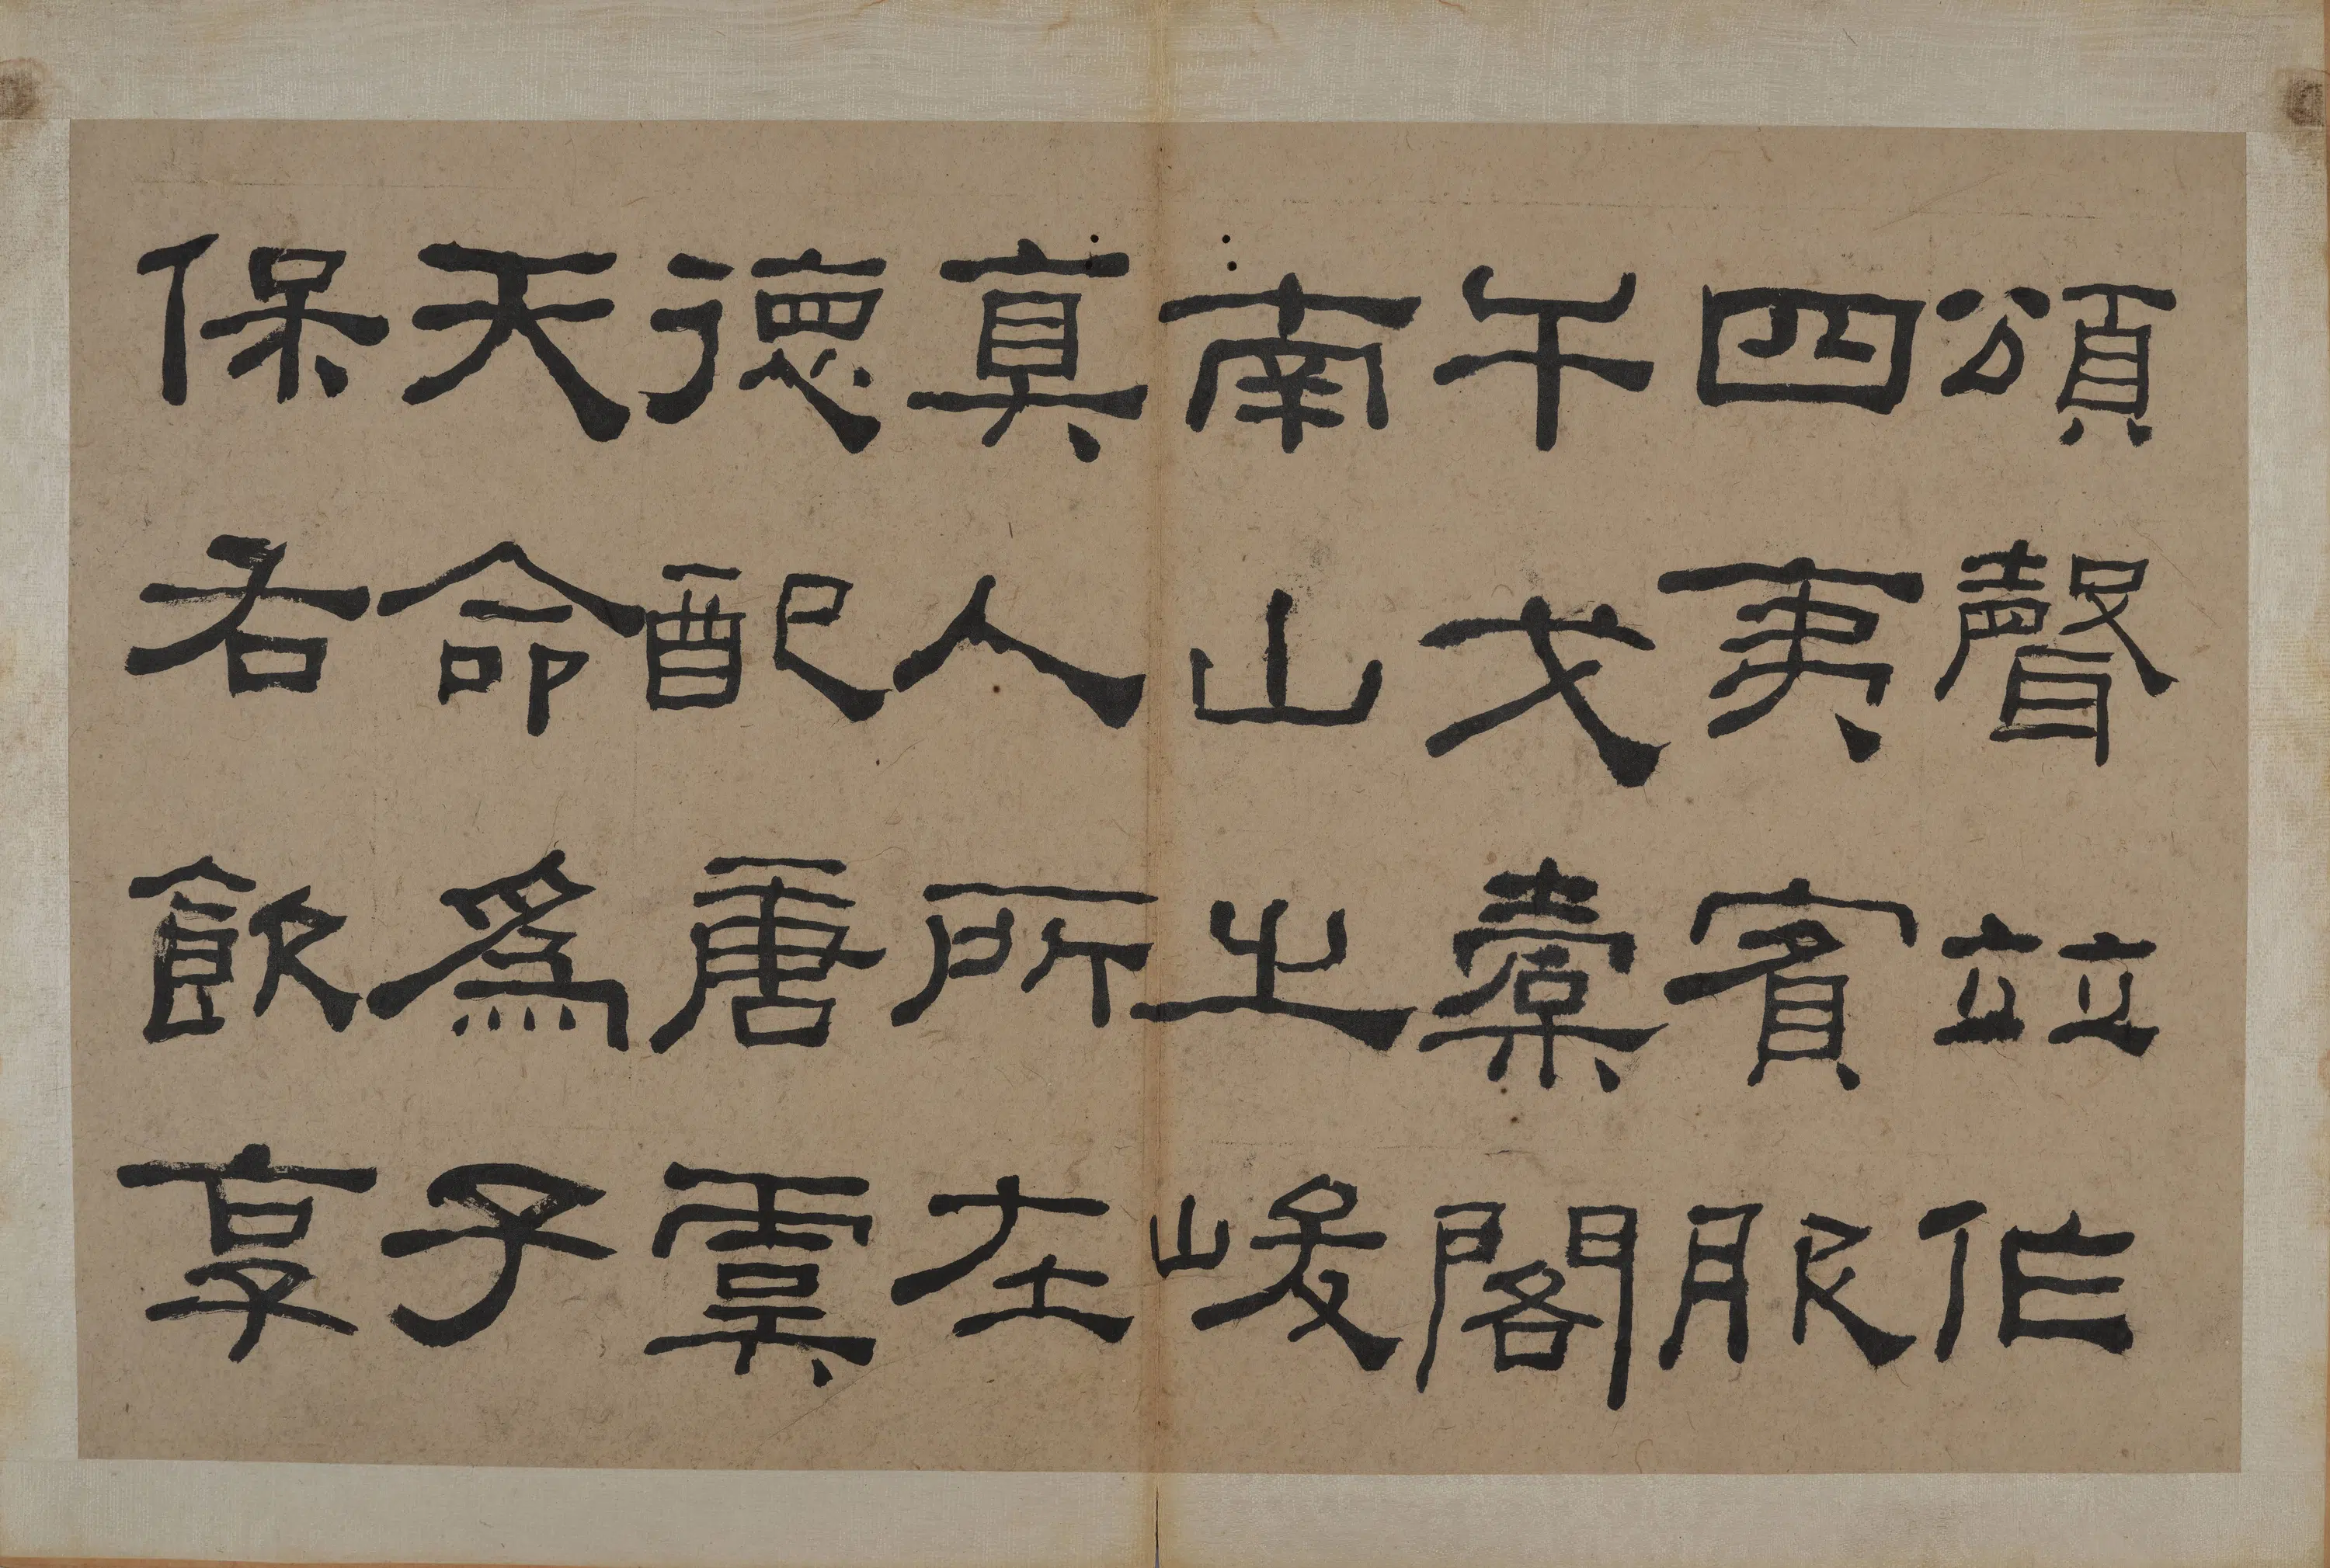 頌聲竝作
四夷賓服
干戈櫜閣
南山之峻
真人所在
德配唐虞
天命爲子
保右飲享